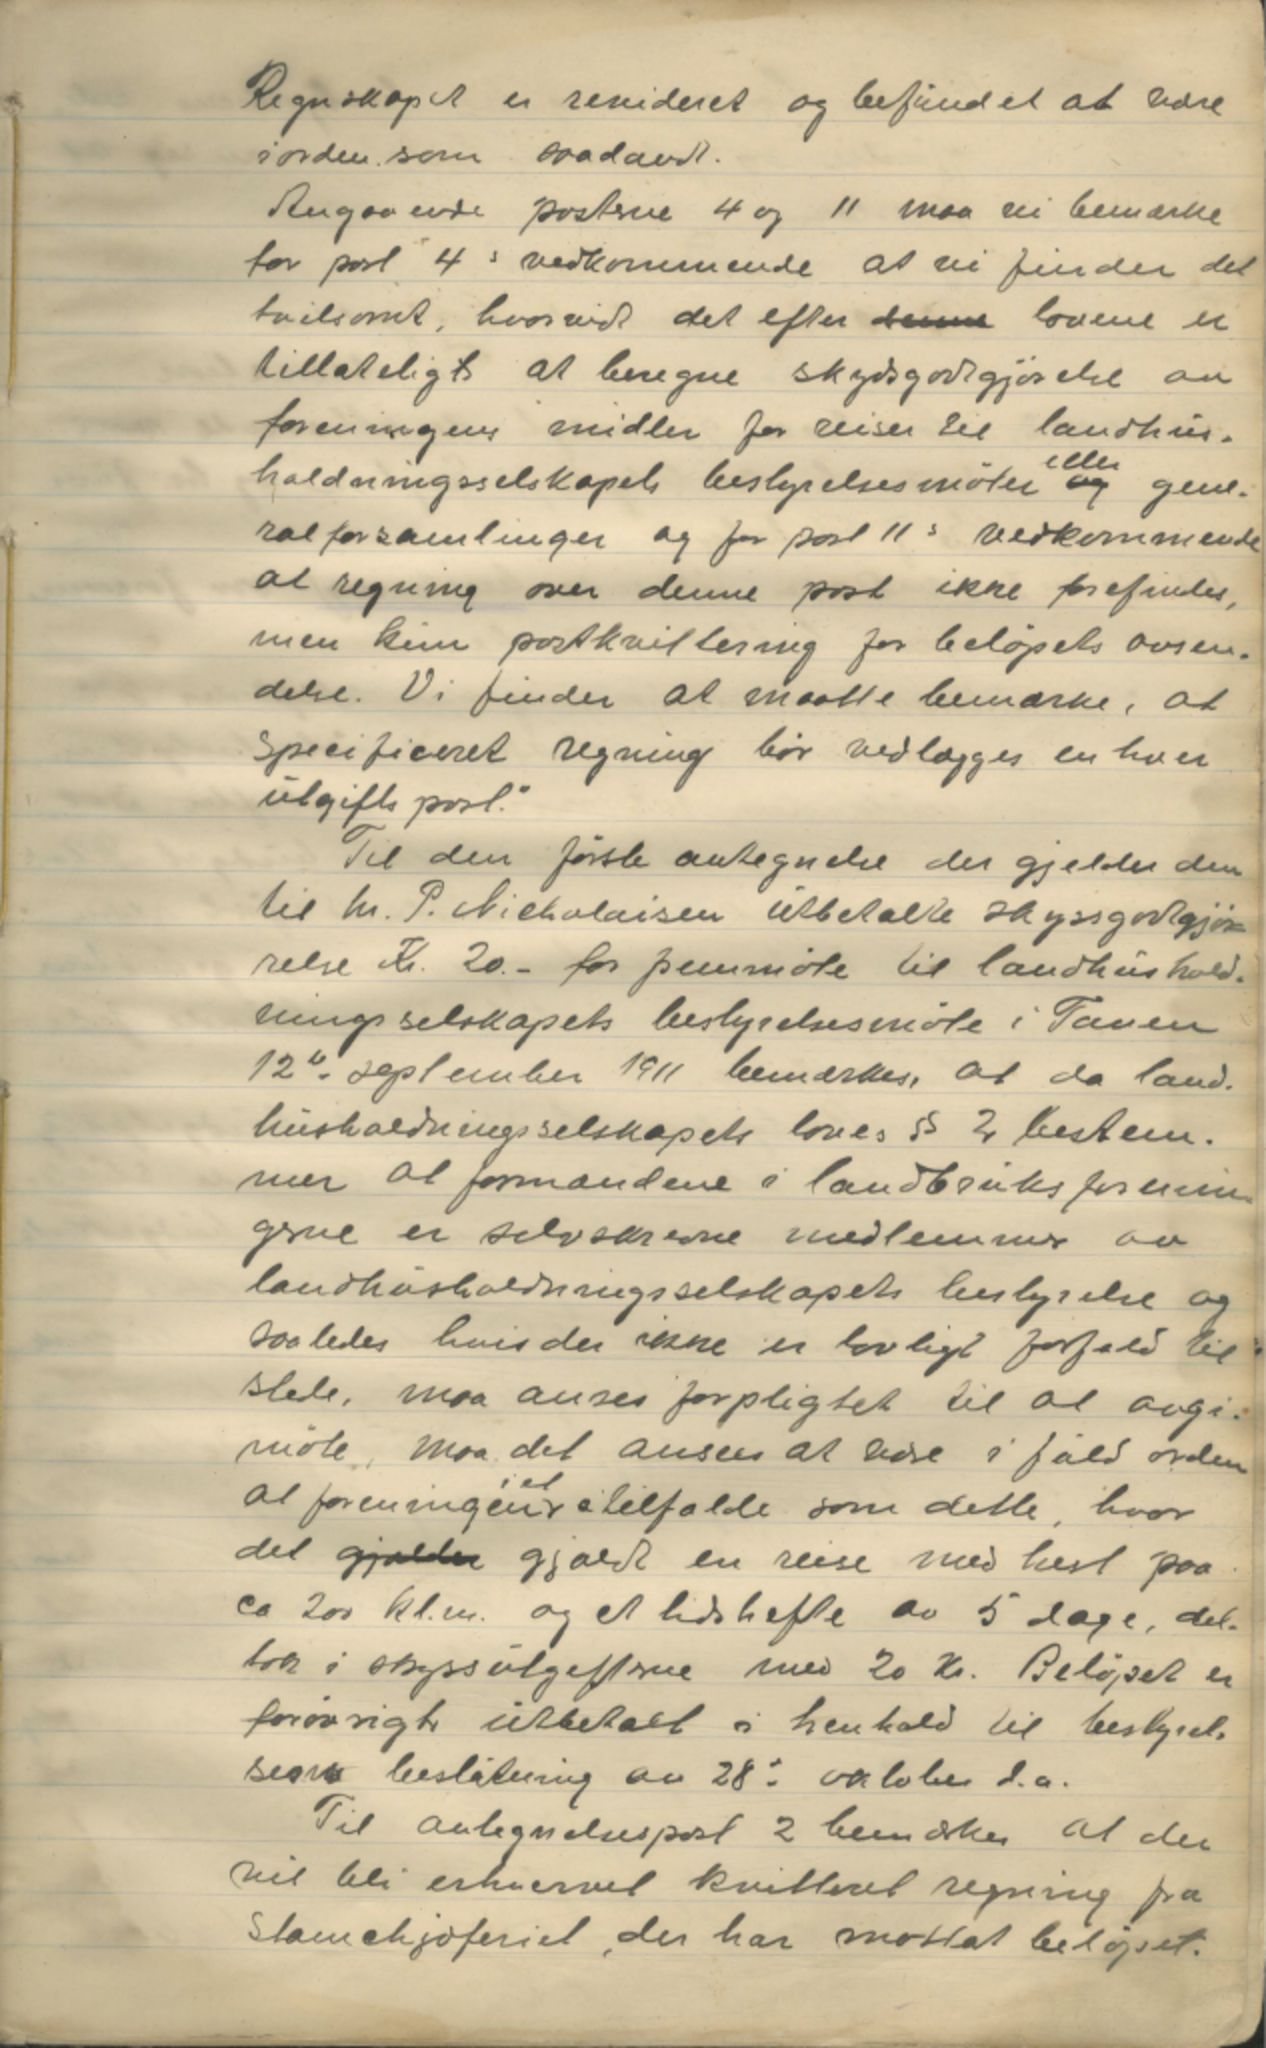 Regnskapet er revideret og befundet at være
iorden som saadant.
Angaaende posterne 4 og 11 maa vi bemærke
for post 4s vedkommende at vi finder det
tvilsomt, hvorvidt det efter denne lovene er
tillateligt at beregne skydsgodtgjörelse av
foreningens midler for reiser til landhus-
holdningsselskapets bestyrelsesmöter og eller gene-
ralforsamlinger og for post 11s vedkommende
at regning over denne post ikke forefindes,
men kun postkvittering for belöpets avsen-
delse. Vi finder at maatte bemærke, at
specificeret regning bör vedlægges enhver
utgiftspost."
Til den förste antegnelse der gjelder den
til hr. P. Nicholaisen utbetalte skyssgodtgjö-
relse Kr. 20.- for fremmöte til landhushold-
ningsselskapets bestyrelsesmöte i Tanen
12te september 1911 bemærkes, at da land-
husholdningsselskapets loves § 2 bestem-
mer at formændene i landbruksforenin-
gerne er selvskrevne medlemmer av
landhusholdningsselskapets bestyrelse og
saaledes hvis der ikke er lovligt forfald til
stede, maa anses forpligtet til at avgi
möte, maa det ansees at være i fuld orden
at foreningen i et tilfælde som dette, hvor
det gjælder gjaldt en reise med hest paa
ca 200 kl.m. og et tidshefte av 5 dage, del-
tok i skyssutgifterne med 20 Kr. Belöpet er
forövrigt utbetalt i henhold til bestyrel-
sens beslutning av 28de oktober d.a.
Til antegnelsespost 2 bemærkes at der
vil bli erhvervet kvitteret regning fra
Stamchjøferiet, der har mottat belöpet.